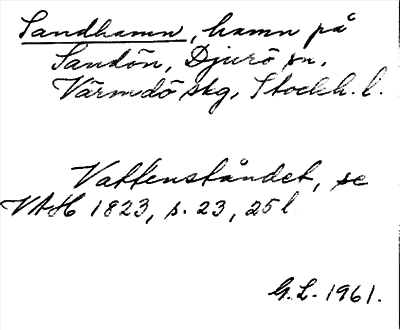 Sandhamn, hamn på
Sandön, Djurö sn,
Värmdö skg, Stockh. l.
Vattenståndet, se
VAH 1823, s. 23, 25 l
G.L. 1961.